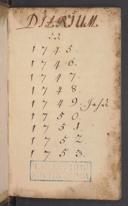 DIARIUM.
de
1745.
1746.
1747.
1748.
1749. Jahr
1750.
1751.
1752.
1753.